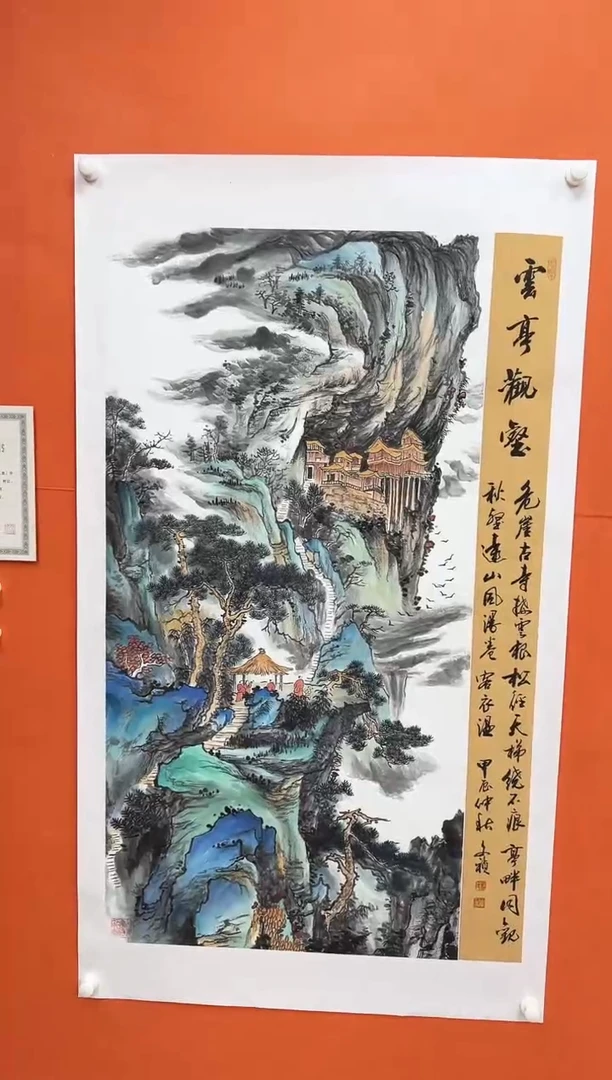 雲亭觀壑
危崖古寺雲根 松徑天梯繞石痕 亭畔同觀
秋壑遠 山風漫卷 客衣溫 甲辰仲秋 文禎